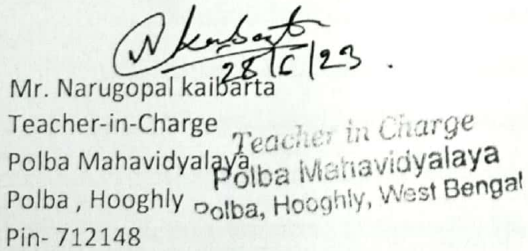 28/6/23.
Mr. Narugopal kaibarta
Teacher-in-Charge
Polba Mahavidyalaya
Polba , Hooghly
Pin- 712148
Teacher in Charge
Polba Mahavidyalaya
Polba, Hooghly, West Bengal